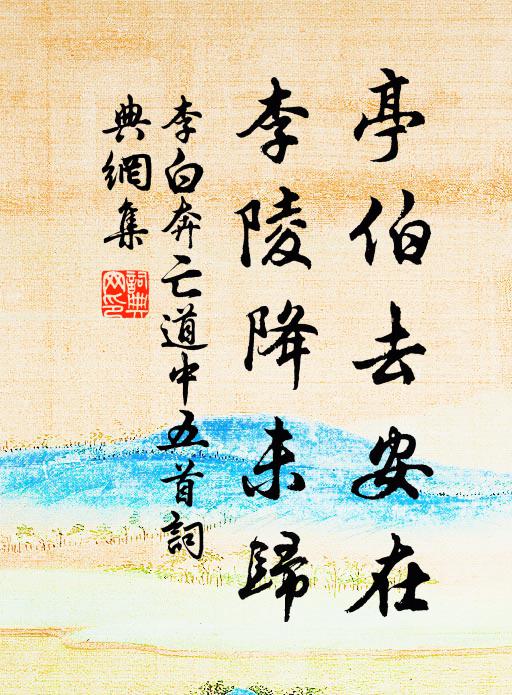 亭伯去安在
李陵降未歸
李白奔亡道中五首詞
典網集
詞典網印